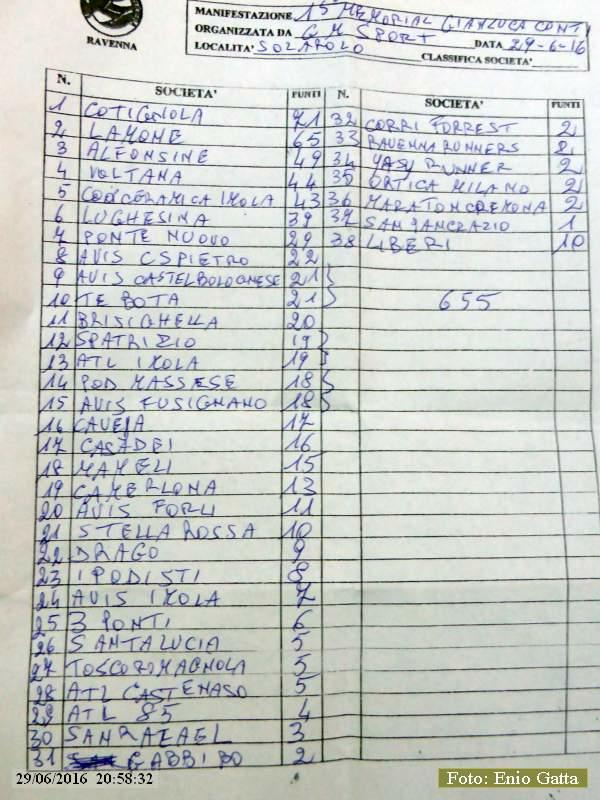 RAVENNA
MANIFESTAZIONE 1° MEMORIAL GIANLUCA CONTI
ORGANIZZATA DA G M SPORT DATA 29-6-16
LOCALITA' SOLAROLO CLASSIFICA SOCIETA'
N. SOCIETA' PUNTI N. SOCIETA' PUNTI
1 COTIGNOLA 71 32 CORRI FORREST 2
2 LAMONE 65 33 RAVENNA RUNNERS 2
3 ALFONSINE 49 34 YASY RUNNER 2
4 VOLTANA 44 35 ORTICA MILANO 2
5 COOPCERAMICA IMOLA 43 36 MARATONCREMONA 2
6 LUGHESINA 39 37 SANPANCRAZIO 1
7 PONTE NUOVO 29 38 LIBERI 10
8 AVIS CSPIETRO 22
9 AVIS CASTELBOLOGNESE 21
10 TE BOTA 21 655
11 BRISIGHELLA 20
12 SPATRIZIO 19
13 ATL IMOLA 19
14 POD MASSESE 18
15 AVIS FUSIGNANO 18
16 CAVEJA 17
17 CASADEI 16
18 MAMELI 15
19 CAMERLONA 13
20 AVIS FORLI 11
21 STELLA ROSSA 10
22 DRAGO 9
23 IPODISTI 8
24 AVIS IMOLA 7
25 3 PONTI 6
26 SANTALUCIA 5
27 TOSCOROMAGNOLA 5
28 ATL CASTENASO 5
29 ATL 85 4
30 SANRAFAEL 3
31 GABBI BO 2
29/06/2016 20:58:32
Foto: Enio Gatta